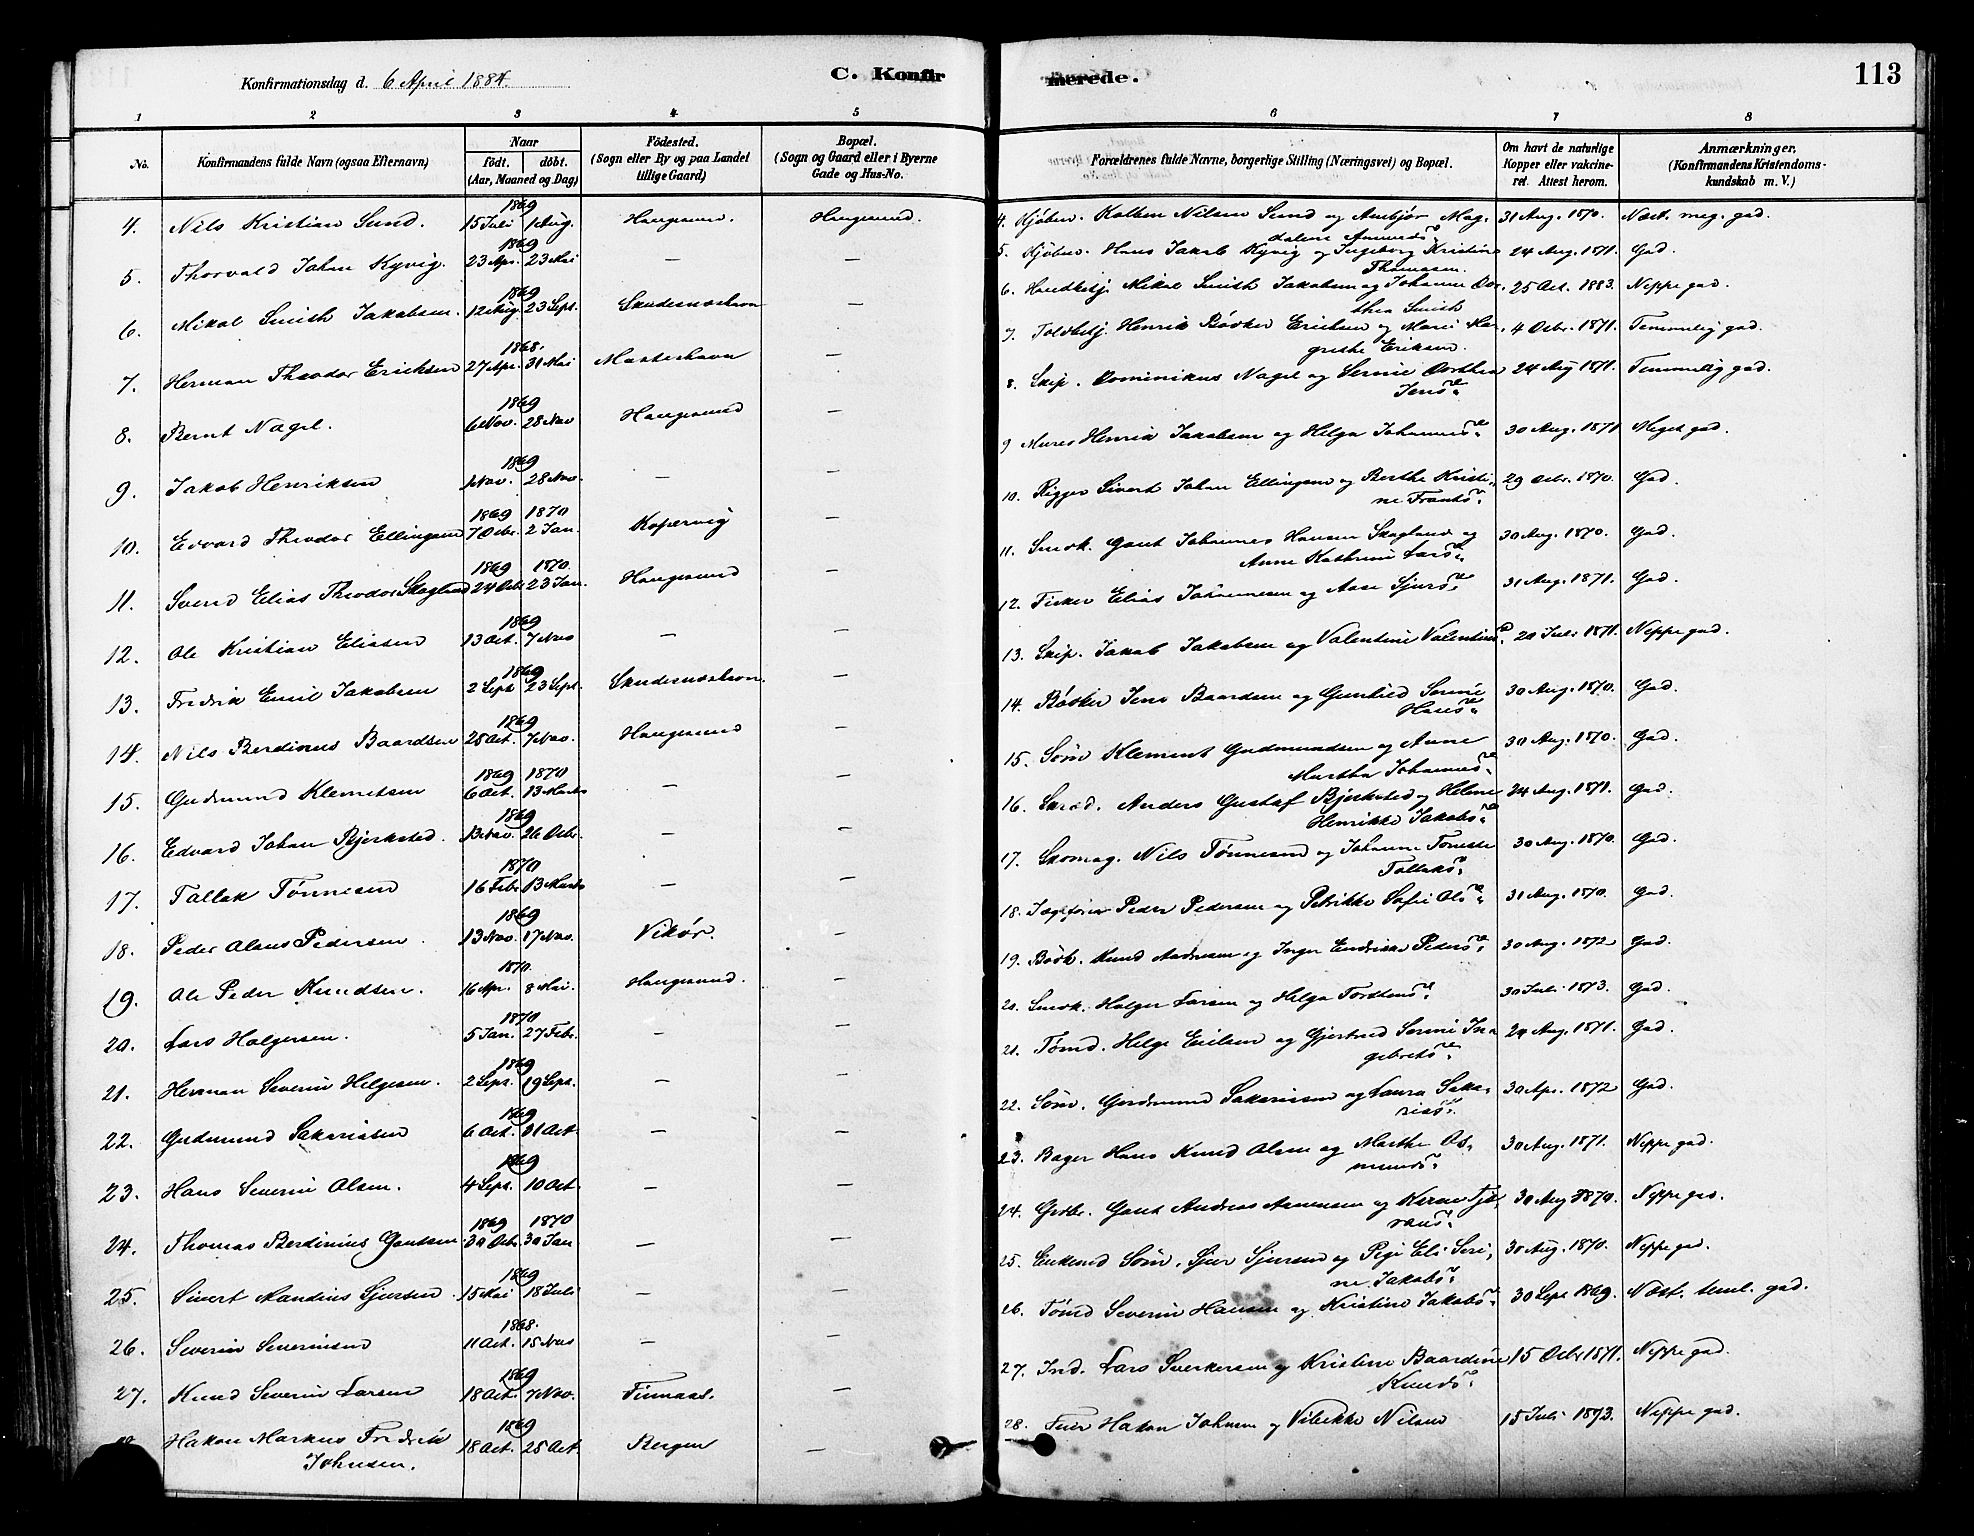 Konfirmationsdag d. 6 April 1884.
C. Konfir
merede.
113
1 2 3 4 5 6 7 8
No.
Konfirmandens fulde Navn (ogsaa Efternavn)
Naar
födt. döbt.
(Aar, Maaned og Dag)
Födested.
(Sogn eller By og paa Landet
tillige Gaard)
Bopæl.
(Sogn og Gaard eller i Byerne
Gade og Hus-No.
Forældrenes fulde Navne, borgerlige Stilling (Næringsvei) og Bopæl.
Om havt de naturlige
Kopper eller vakcine-
ret. Attest herom.
Anmærkninger.
(Konfirmandens Kristendoms-
kundskab m. V.)
1869
4. Nils Kristian Sund. 15 Juli 1 Aug. Haugesund. Haugesund.
1869
5. Thorvald Johan Kyvig. 23 Apr. 23 Mai — —
1869
6. Mikal Smith Jakobsen. 12 Aug 23 Sept. Skudesneshavn —
1868.
7. Herman Theodor Ericksen 27 Apr. 31 Mai —
1869
8. Bernt Nagel. 6 Nov. 28 Nov Haugesund —
1869
9. Jakob Henriksen 1 Nov. 28 Nov. — —
1869 1870
10. Edvard Theodor Ellingsen 7 Decbr. 2 Jan. Kopervig —
1869 1870.
11. Svend Elias Theodor Skogland 24 Oct. 23 Jan. Haugesund —
1869
12. Ole Kristian Eliasen 13 Oct. 7 Nov — —
1869
13. Fredrik Emil Jakobsen 2 Sept 23 Sept. Skudesneshavn. —
1869
14. Nils Berdinus Baardsen 28 Oct. 7 Nov. Haugesund —
1869 1870
15. Gudmund Klemetsen 6 Oct. 13 Marts — —
1869
16. Edvard Johan Bjerksted. 13 Nov. 26 Decbr. — —
1870
17. Tallak Tönnesen 16 Febr. 13 Marts — —
1869
18. Peder Olaus Pedersen. 13 Nov. 17 Nov. Vikör. —
1870.
19. Ole Peder Knudsen. 16 Apr. 8 Mai. Haugesund. —
1870
20. Lars Holgersen. 5 Jan. 27 Febr. — —
1869
21. Herman Severin Helgesen. 2 Sept. 19 Sept. — —
1869
22. Gudmund Sakariasen 6 Oct. 31 Oct. — —
1869
23. Hans Severin Olsen. 4 Sept. 10 Oct. — —
1869 1870
24. Thomas Berdinius Gautsen. 30 Octbr. 30 Jan — —
1869
25. Sivert Mandius Sjursen. 15 Mai 18 Juli — —
1868.
26. Severin Severinsen 11 Oct. 15 Nov — —
1869
27. Knud Severin Larsen 18 Oct. 7 Nov. Finnaas. —
1869
Hakon Markus Fredrik 18 Oct. 25 Oct. Bergen —
Johnsen.
4. Kjöbm. Nilsen Sund og Mag- 31 Aug. 1870. Næst. meg. god.
5. Kjöbm. Hans Jakob Kyvig og Ingeborg Kristine 24 Aug. 1871. God.
Thomasen.
6. Mikal Smith Jakobsen og Johanne Dor- 25 Oct. 1883. Neppe god.
thea Smith
7. Henrik Bödker Ericksen og Maren Mar- 4 Octbr. 1871. Temmelig god.
grethe Eriksen.
8. Skip. Dominikus Nagel og Serine Dorthea 24 Aug 1871. Temmelig god.
Jensd.
9 Murer Henrik Jakobsen og Helga Johannesd. 30 Aug. 1871 Meget god.
10. Rigger Sivert Johan Ellingsen og Berthe Kristi- 29 Octbr. 1870. God.
ne Frantsd.
11. Smedk. Gaut Johannes Hansen Skogland og 30 Aug. 1870. God.
Anne Kathrine Larsd.
12. Fisker Elias Johannesen og Aase Sjursd. 31 Aug. 1871. God.
13. Skip. Jakob Jakobsen og Valentine Valentinsd. 20 Juli 1871. Neppe god.
14. Bödker Jens Baardsen og Gunhild Serine 30 Aug. 1870. God.
Hansd.
15. Söm. Klement Gudmundsen og Anne 30 Aug. 1870. God.
Martha Johannesd.
16. Skræd. Anders Gustaf Bjerksted og Helene 24 Aug. 1871. God.
Henrikke Jakobsd.
17. Skomag. Nils Tönnesen og Johanne Tomette 30 Aug. 1870. God.
Tallaksd.
18. Jægtförer Peder Pedersen og Petrikke Sofie Olsd. 31 Aug. 1870. God.
19. Bödk. Knud Andresen og Inger Endrikke Pedersd. 30 Aug. 1872 God.
20. Smedk. Holger Larsen og Helga Torstensd. 30 Juli 1873. God.
21. Tömd. Helge Eriksen og Gjertrud Serine In- 24 Aug. 1871. God.
gebretsd.
22. Söm. Gudmund Sakariasen og Laura Saka- 30 Apr. 1872 God.
riasd.
23. Bager Hans Knud Olsen og Marthe As- 30 Aug. 1871. Neppe god.
mundsd.
24. Gaut Andreas Asmensen og 30 Aug 1870. Neppe god.
25. Enkemd Söm. Sjur Sjursen og Eli Seri- 30 Aug. 1870. Neppe god.
ne Jakobsd.
26. Tömd Severin Hansen og Kristine Jakobsd. 30 Sept 1869. Næst. teml. god.
27. Ind. Lars Sverkersen og Kristine Baardine 15 Octbr 1871. Neppe god.
Knudsd.
28. Feier Hakon Johnsen og Vibekke Nilsen 15 Juli 1873. Neppe god.